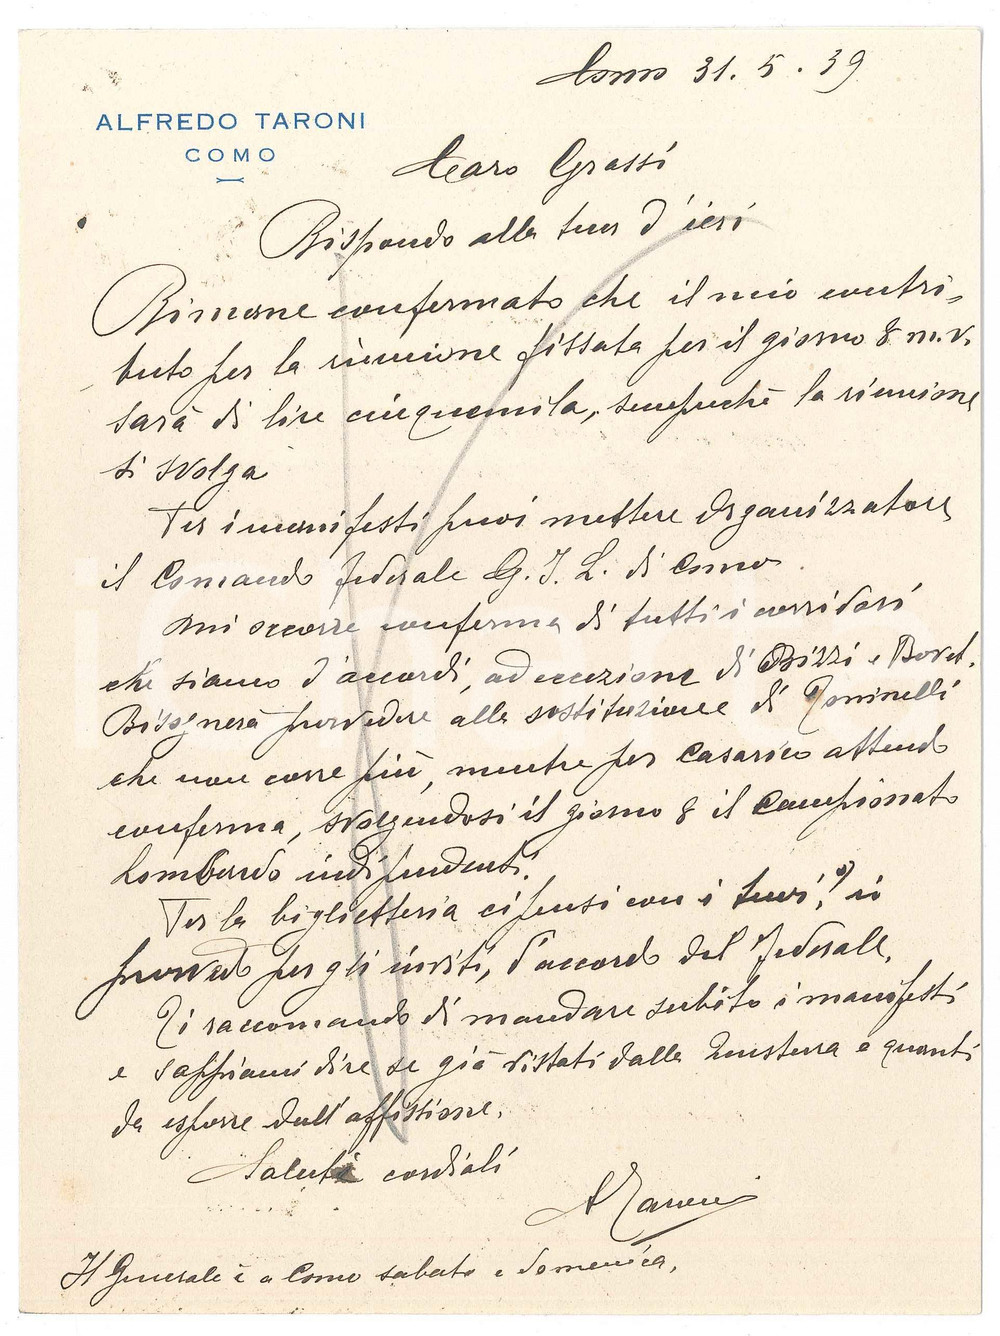 Como 31.5.39
ALFREDO TARONI
COMO
Caro Grassi
Rispondo alla tua d'ieri
Rimane confermato che il mio contri-
buto per la riunione fissata per il giorno 8 m.v.
sarà di lire cinquemila, semprechè la riunione
si svolga
Per i manifesti puoi mettere organizzatore
il Comando federale G.I.L. di Como.
Mi occorre conferma di tutti i corridori
che siamo d'accordi, ad eccezione di Bizzi e Bovet.
Bisognerà provvedere alla sostituzione di Toninelli
che non corre più, mentre per Casarico attendo
conferma, svolgendosi il giorno 8 il Campionato
Lombardo indipendenti.
Per la biglietteria ci pensi con i tuoi, io
provvedo per gli inviti, d'accordo del Federale.
Ti raccomando di mandare subito i manifesti
e sappiami dire se già vistati dalla Questura e quanti
da esporre dall'affissione.
Saluti cordiali
A Taroni
Il Generale è a Como sabato e domenica.